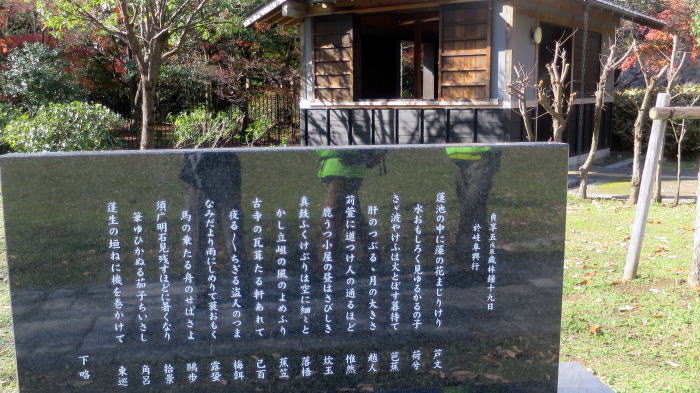 貞享五戊辰歳林鐘十九日
於岐阜興行
蓮池の中に藻の花まじりけり　芦文
水おもしろく見ゆるかるの子　荷兮
さゞ波やけふは火とぼす暮待て　芭蕉
肝のつぶるゝ月の大きさ　越人
苅萱に道つけ人の通るほど　惟然
鹿うつ小屋の昼はさびしき　炊玉
真鉄ふくけぶりは空に細々と　落梧
かし立岨の風のよめふり　蕉笠
古寺の瓦葺たる軒あれて　己百
夜る〱ちぎる盗人のつま　梅餌
なみだより雨にしめりて蓑おもく　露蛍
馬の乗たる舟のせばさよ　鷗歩
須广明石見残すほどに暑くなり　拾景
筆ゆひかぬる茄子ちいさし　角呂
蓬生の垣ねに機を巻かけて　東巡
下略